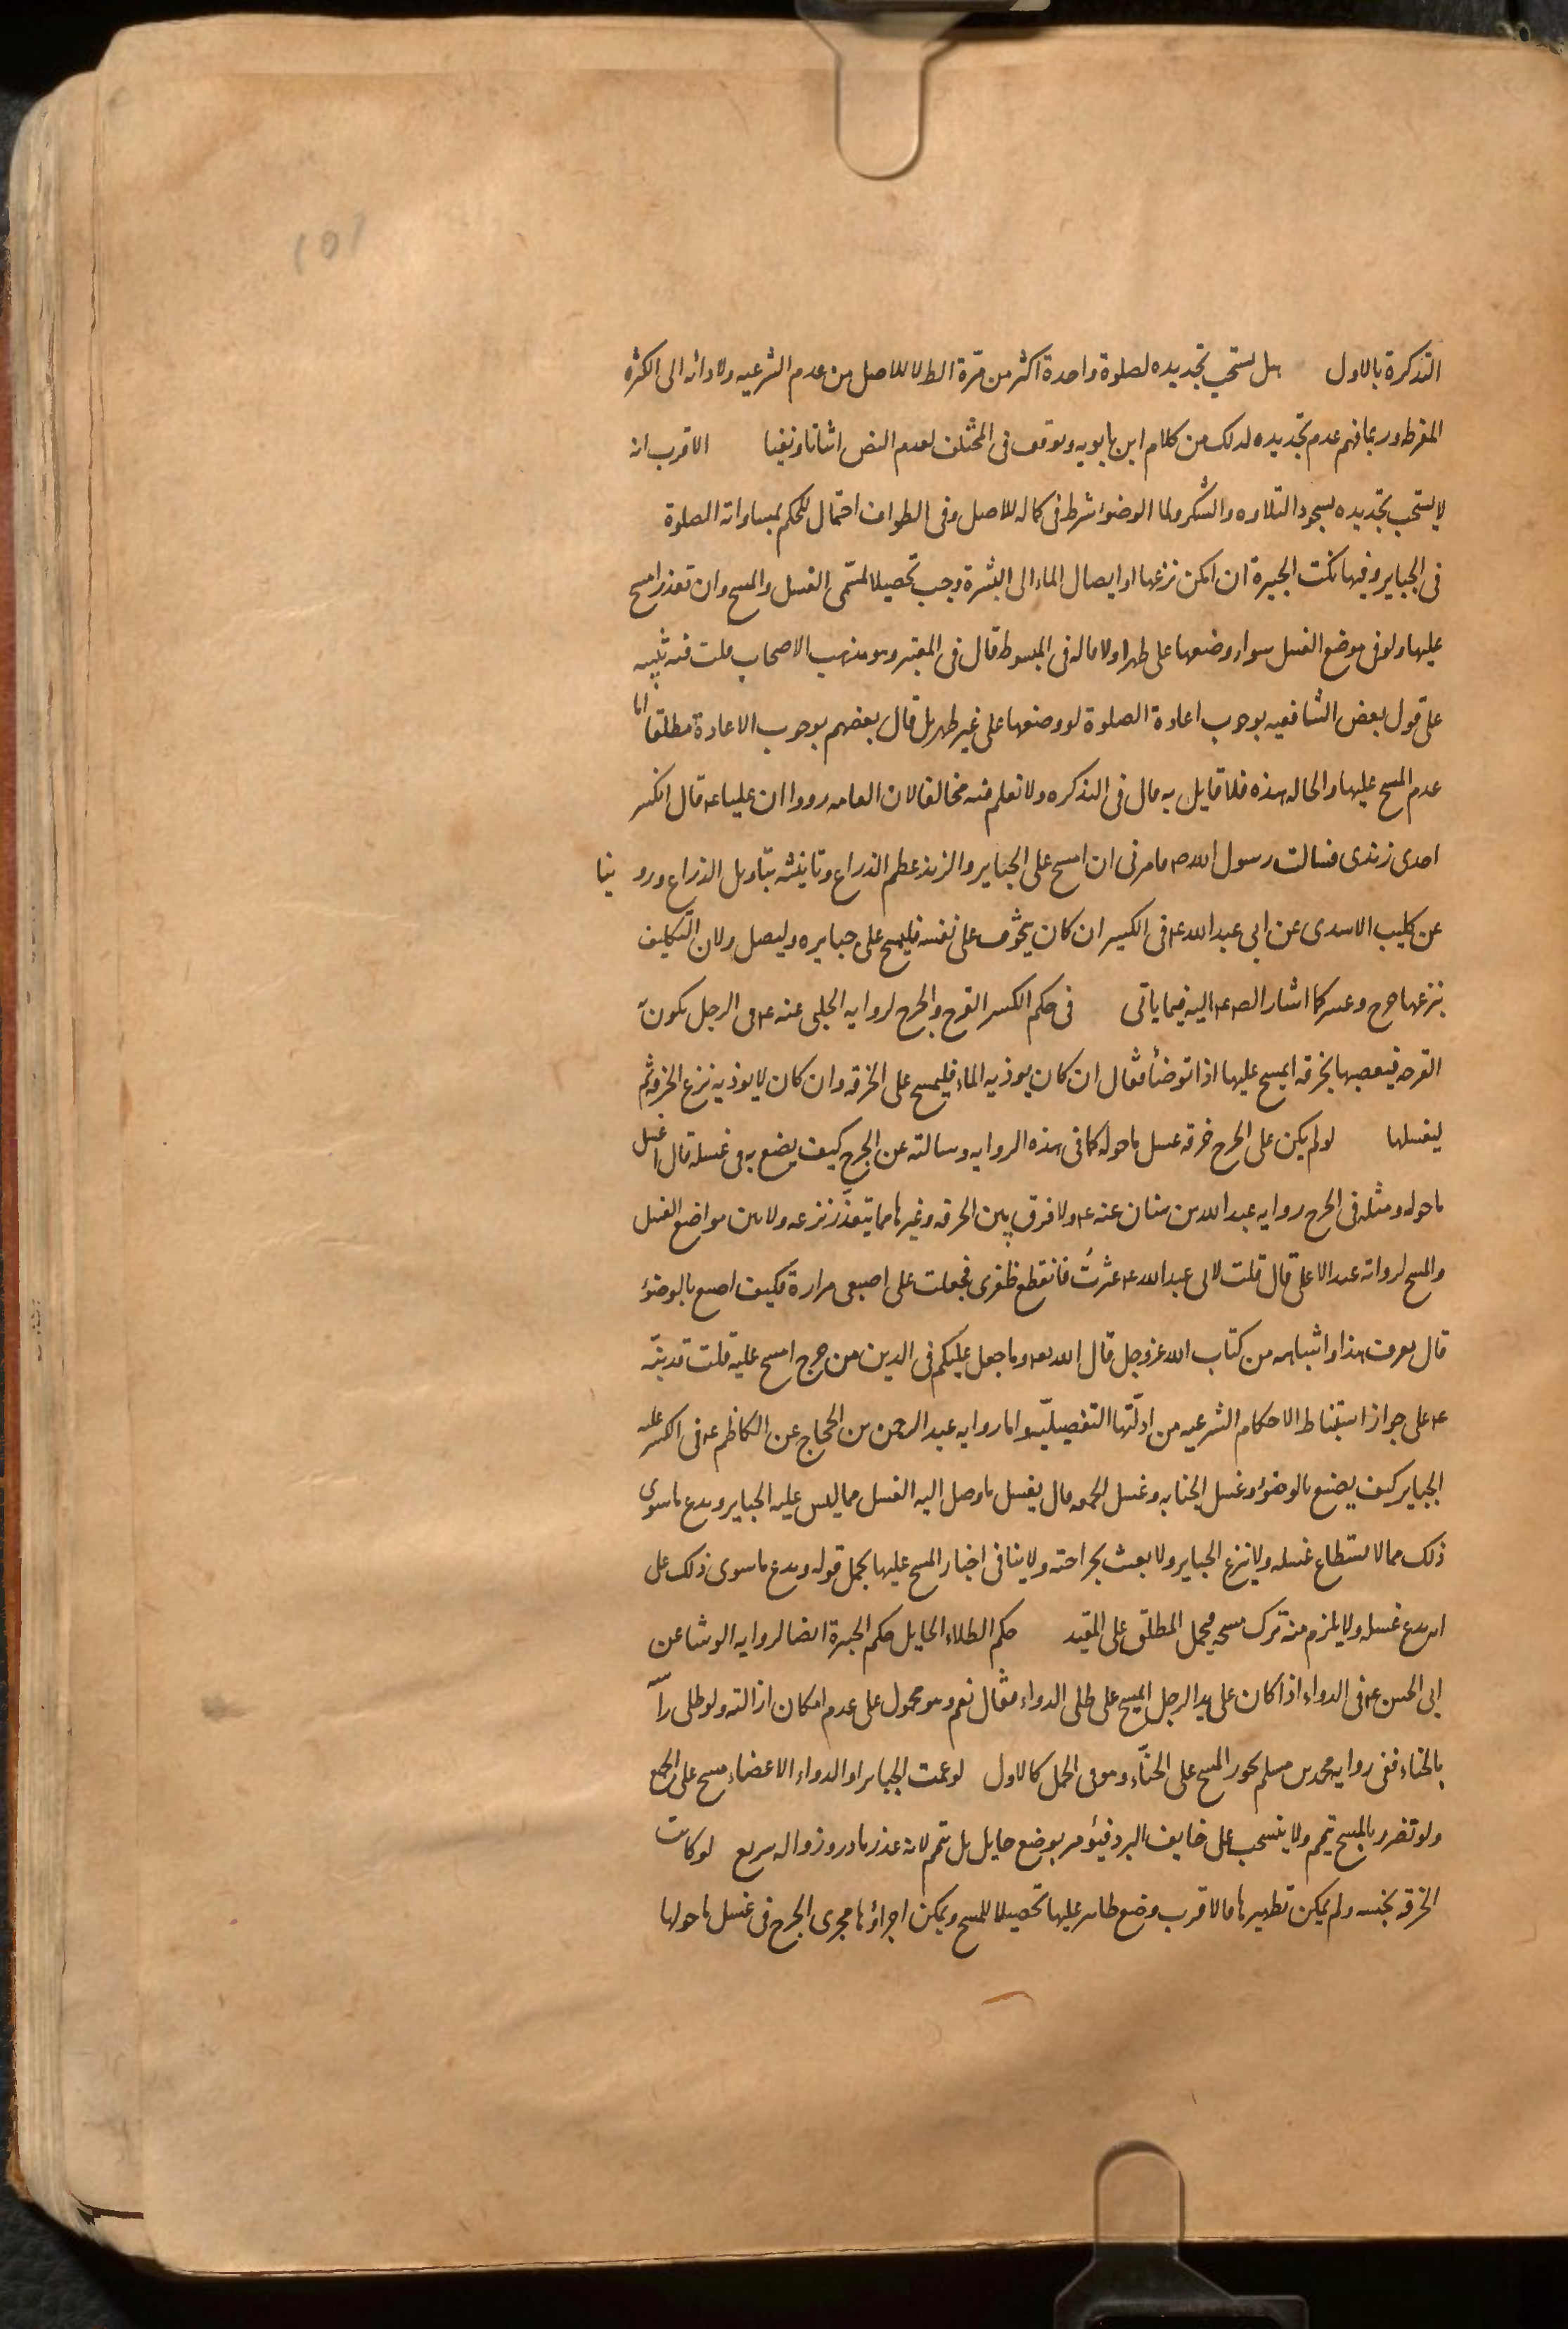 ١٥١
التذكرة بالاول هل يستحب تجديده لصلوة واحدة اكثر من مرة الظ لا للاصل من عدم الشرعيه ولادائه الى الكثره
المفرطه وربما فهم عدم تجديده لذلك من كلام ابن بابويه وتوقف فى المختلف لعدم النص اثباتا ونفيا الاقرب انه
لا يستحب تجديده لسجود التلاوه والشكر ولما الوضوء شرط فى كماله للاصل وفى الطواف احتمال للحكم بمساواته الصلوة
فى الجباير وفيها نكت الجبيرة ان امكن نزعها او ايصال الماء الى البشرة وجب تحصيلا لمسمى الغسل والمسح وان تعذر امسح
عليها ولو فى موضع الغسل سواء وضعها على طهر اولا قاله فى المبسوط قال فى المعتبر وهو مذهب الاصحاب قلت فيه تنبيه
على قول بعض الشافعيه بوجوب اعادة الصلوة لو وضعها على غير طهر بل قال بعضهم بوجوب الاعادة مطلقا اما
عدم المسح عليها والحاله هذه فلا قايل به قال فى التذكره ولا نعلم فيه مخالفا لان العامه رووا ان عليا ع قال انكسر
احدى زندى فسالت رسول الله ص فامرنى ان امسح على الجباير والزند عظم الذراع وتانيثه بتاويل الذراع وروينا
عن كليب الاسدى عن ابى عبد الله ع فى الكسير ان كان يتخوف على نفسه فليمسح على جبايره وليصل ولان التكليف
بنزعها حرج وعسر كما اشار الص ع اليه فيما ياتى فى حكم الكسر القرح والجرح لروايه الحلبى عنه ع فى الرجل يكون به
القرحه فيعصبها بخرقه ايمسح عليها اذا توضأ فقال ان كان يوذيه الماء فليمسح على الخرقه وان كان لا يوذيه نزع الخرقه ثم
ليغسلها لو لم يكن على الجرح خرقه غسل ما حوله كما فى هذه الروايه وسالته عن الجرح كيف يصنع به فى غسله قال اغسل
ما حوله ومثله فى الجرح روايه عبد الله بن سنان عنه ع ولا فرق بين الخرقه وغيرها مما يتعذر نزعه ولا بين مواضع الغسل
والمسح لروايه عبد الاعلى قال قلت لابى عبد الله ع عثرتُ فانقطع ظفرى فجعلت على اصبعى مرارة فكيف اصنع بالوضوء
قال يعرف هذا واشباهه من كتاب الله عز وجل قال الله تع وما جعل عليكم فى الدين من حرج امسح عليه قلت قد نبه
ع على جواز استنباط الاحكام الشرعيه من ادلّتها التفصيليّه واما روايه عبد الرحمن بن الحجاج عن الكاظم ع فى الكسر عليه
الجباير كيف يصنع بالوضوء وغسل الجنابه وغسل الجمعه قال يغسل ما وصل اليه الغسل مما ليس عليه الجباير ويدع ما سوى
ذلك مما لا يستطاع غسله ولا ينزع الجباير ولا يعبث بجراحته ولا ينافى اخبار المسح عليها بحمل قوله ويدع ما سوى ذلك على
انه يدع غسله ولا يلزم منه ترك مسحه فيحمل المطلق على المقيد حكم الطلاء الحايل حكم الجبيرة ايضا لروايه الوشا عن
ابى الحسن ع فى الدواء اذا كان على يد الرجل ايمسح على طلى الدواء فقال نعم وهو محمول على عدم امكان ازالته ولو طلى راسه
بالحناء ففى روايه محمد بن مسلم يجوز المسح على الحنّاء وهو فى الحمل كالاول لو عمت الجباير او الدواء الاعضاء مسح على الجميع
ولو تضرر بالمسح تيمم ولا ينسحب على خايف البرد فيؤمر بوضع حايل بل يتيمم لانه عذر نادر وزواله سريع لو كانت
الخرقه نجسه ولم يمكن تطهيرها فالاقرب وضع طاهر عليها تحصيلا للمسح ويمكن اجراؤها مجرى الجرح فى غسل ما حولها